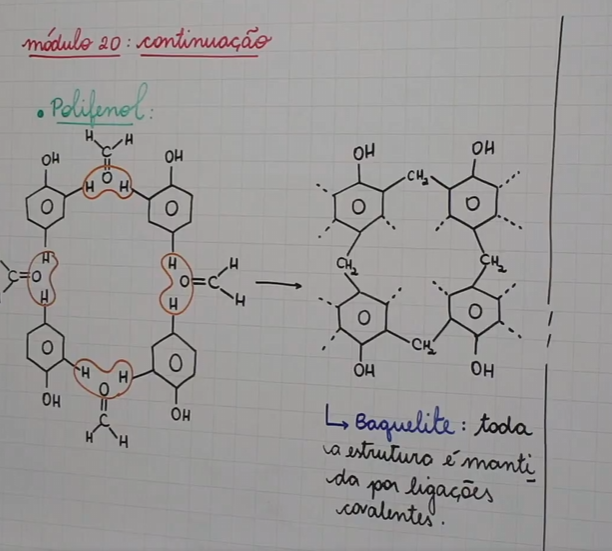 módulo 20: continuação
• Polifenol:
H H
C
OH O OH
H H
O O
H H
C=O O=C H
H H H
O O
H H
OH O OH
C
H H
OH OH
CH₂
O O
CH₂ CH₂
O O
CH₂
OH OH
↳ Baquelite: toda
a estrutura é manti
da por ligações
covalentes.